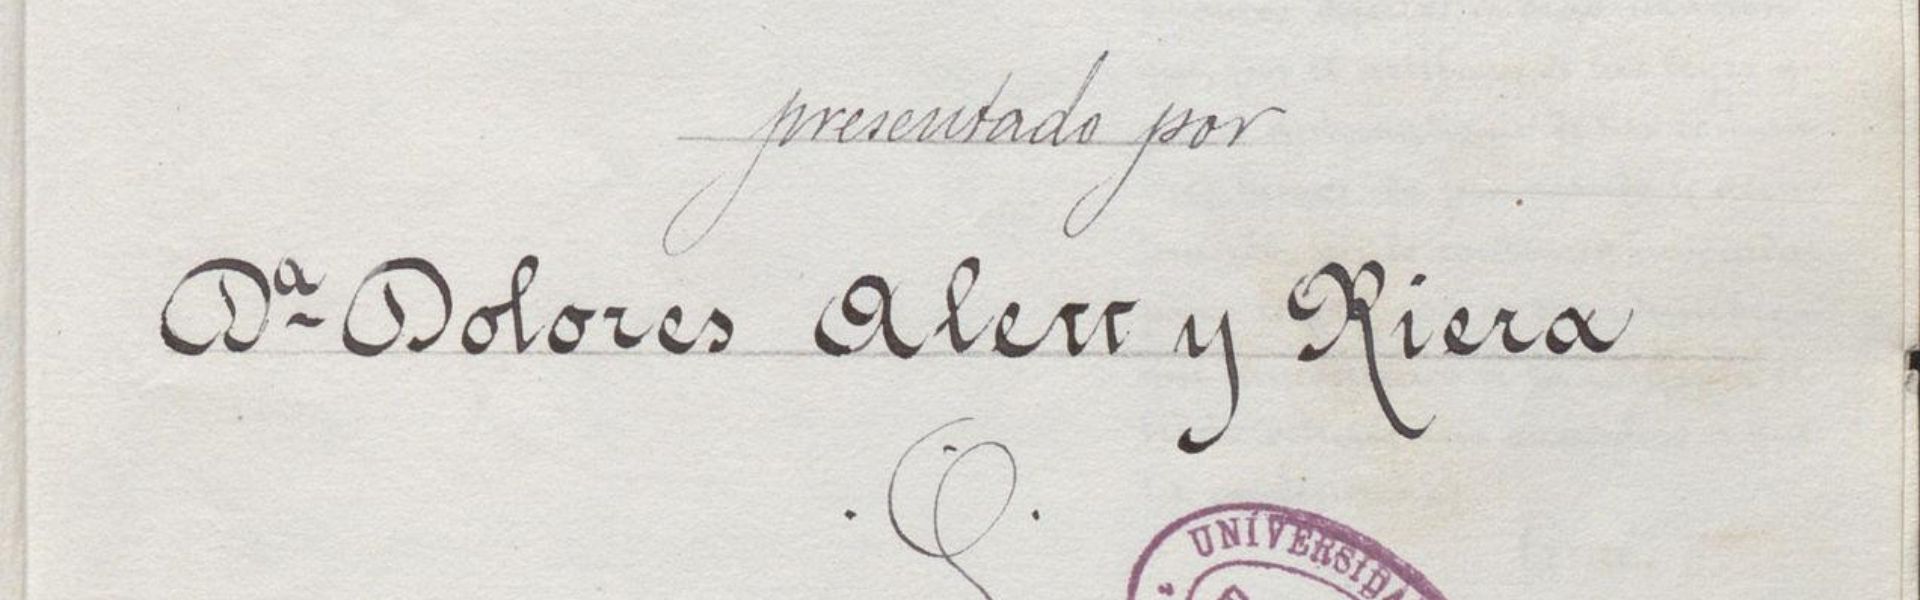 presentado por
Dª Dolores Aleu y Riera
UNIVERSIDA